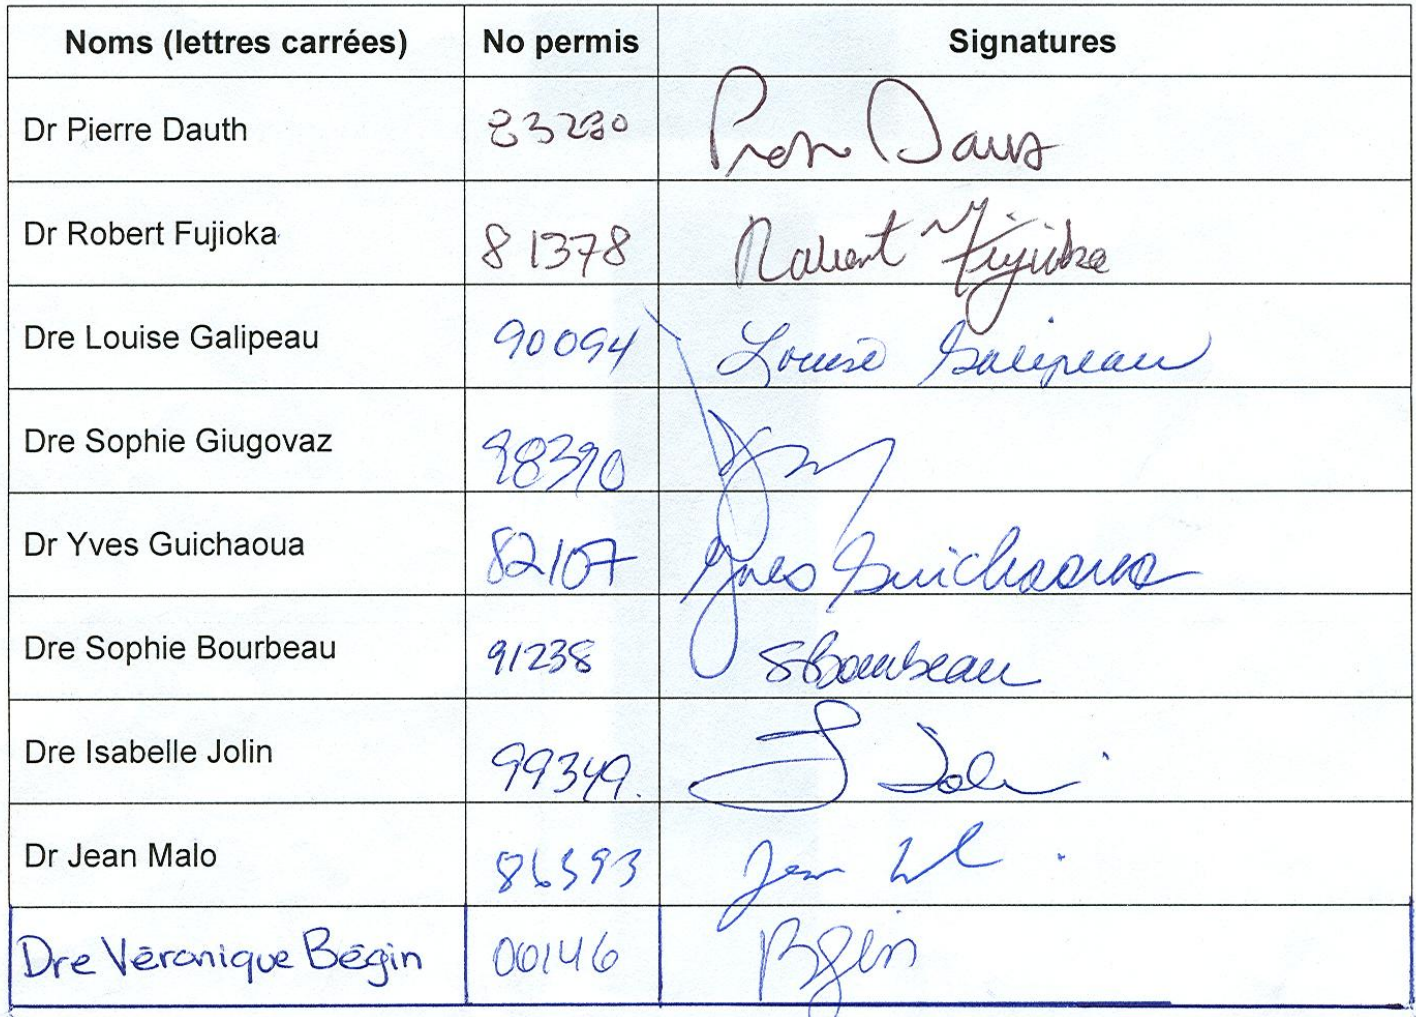 Noms (lettres carrées) No permis Signatures
Dr Pierre Dauth 83280 Pierre Dauth
Dr Robert Fujioka 81378 Robert Fujioka
Dre Louise Galipeau 90094 Louise Galipeau
Dre Sophie Giugovaz 98390
Dr Yves Guichaoua 82107 Yves Guichaoua
Dre Sophie Bourbeau 91238 SBourbeau
Dre Isabelle Jolin 99349. I Jolin
Dr Jean Malo 86593 Jean
Dre Véronique Bégin 00146 Bégin